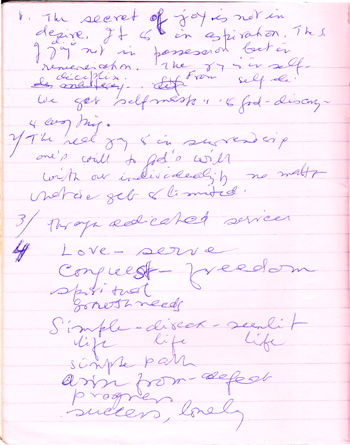 1. The secret of joy is not in
desire. It is in aspiration. The
joy not in possession but in
renunciation. The joy is in self-
discipline. From self di
we get self mast & God-discov-
& everything.
2/ The real joy is in surrendering
one's will to God's will
with our individuality no matter
what we get is limited.
3/ Through dedicated service
4 Love - serve
Conquest - freedom
spiritual
growth needs
Simple - discer - sunlit
life life life
simple path
arise from - defeat
progress
success, lonely